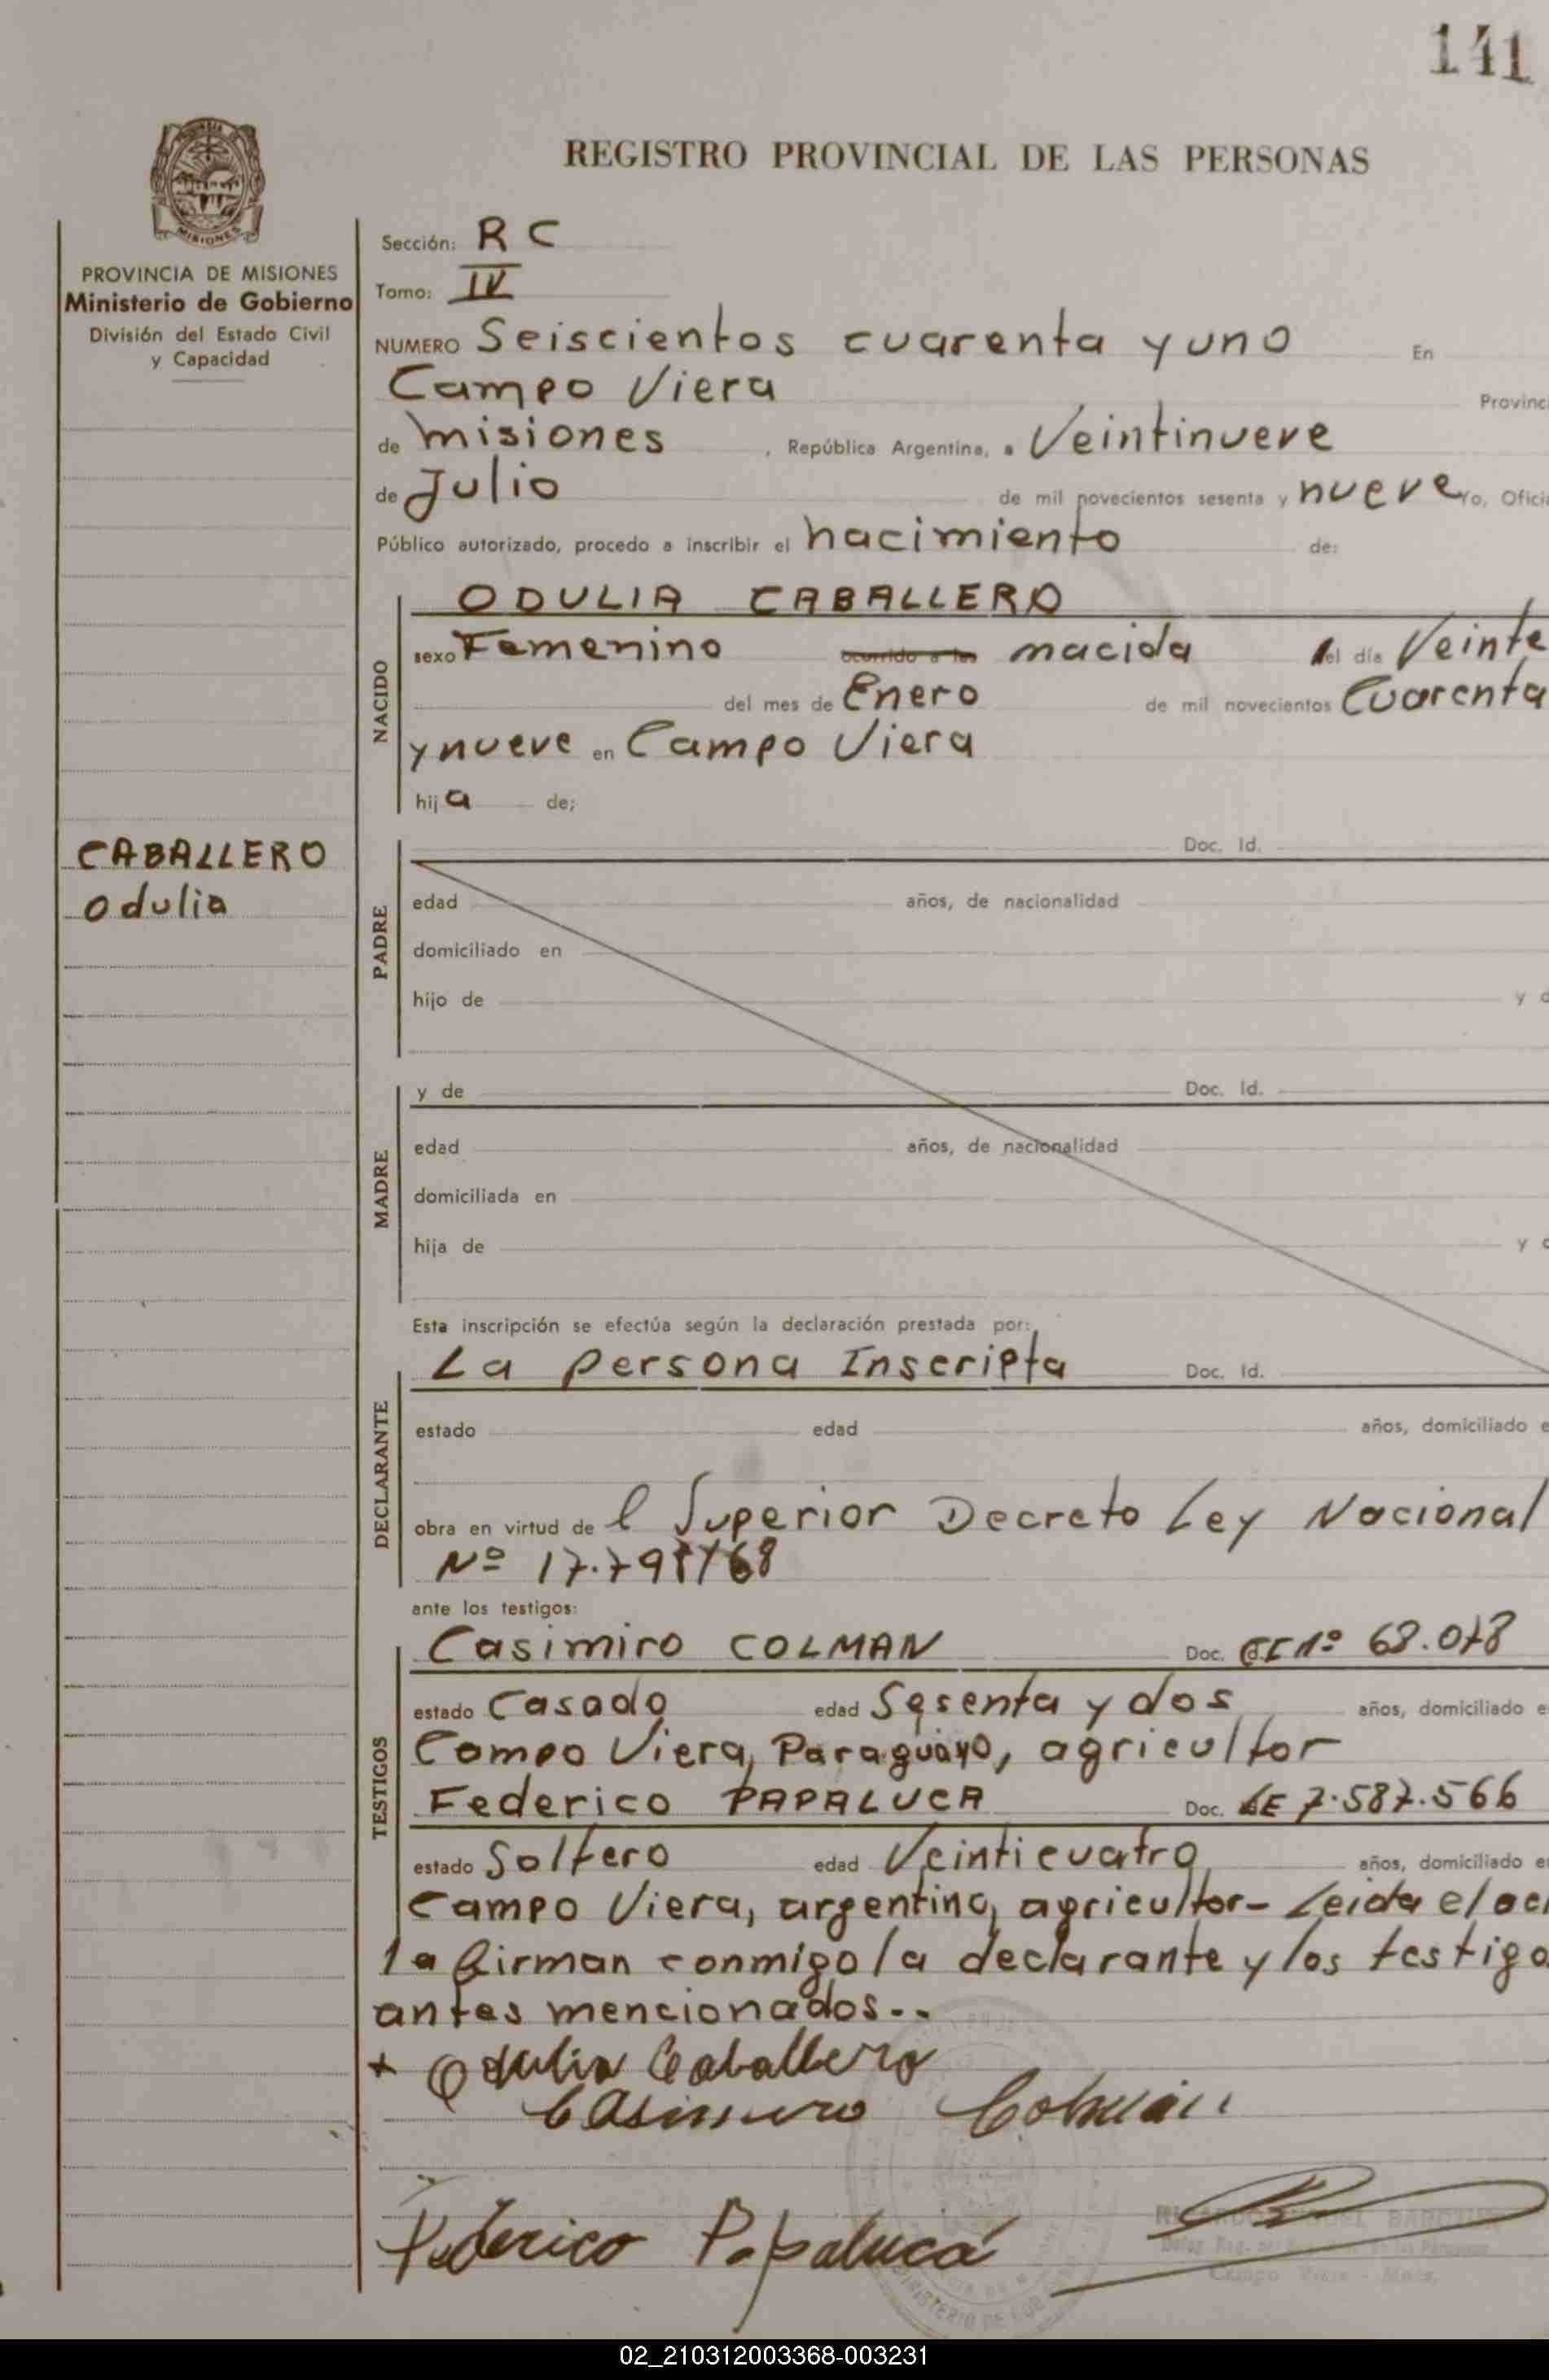 141
REGISTRO PROVINCIAL DE LAS PERSONAS
MISIONES
PROVINCIA DE MISIONES
Ministerio de Gobierno
División del Estado Civil
y Capacidad
Sección: R C
Tomo: IV
NUMERO Seiscientos cuarenta y uno En
Campo Viera Provinc
de misiones , República Argentina, a Veintinueve
de Julio de mil novecientos sesenta y nueve Yo, Ofici
Público autorizado, procedo a inscribir el nacimiento de:
NACIDO
ODULIA CABALLERO
sexo Femenino ocurrido a las nacida del día Veinte
del mes de Enero de mil novecientos Cuarenta
y nueve en Campo Viera
hija de;
CABALLERO
Odulia
PADRE
Doc. Id.
edad años, de nacionalidad
domiciliado en
hijo de y d
MADRE
y de Doc. Id.
edad años, de nacionalidad
domiciliada en
hija de y d
Esta inscripción se efectúa según la declaración prestada por:
DECLARANTE
La persona Inscripta Doc. Id.
estado edad años, domiciliado e
obra en virtud de l Superior Decreto Ley Nacional
Nº
ante los testigos:
TESTIGOS
Casimiro COLMAN Doc. Nº 68.078
estado Casado edad Sesenta y dos años, domiciliado e
Campo Viera, Paraguayo, agricultor
Federico PAPALUCA Doc. LE 7.587.566
estado Soltero edad Veinticuatro años, domiciliado e
Campo Viera, argentino, agricultor- Leida el ac
la firman conmigo la declarante y los testigo
antes mencionados..
+ Odulia Caballero
Casimiro Colman
Federico Papaluca
Campo Viera - Mnes.
02_210312003368-003231